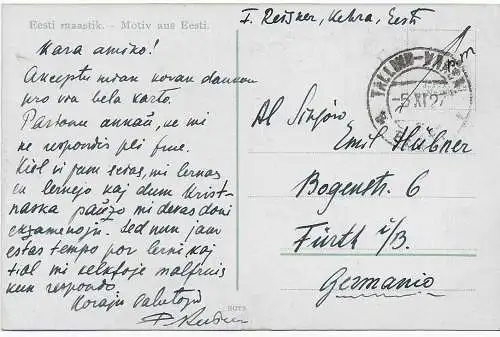 Eesti maastik. - Motiv aus Eesti.
I. Reisner, Kehra, Eesti
Kara amiko!
Akceptu mian koran dankon
pro via bela karto.
Pardonu ankaŭ, ke mi
ne respondis pli frue.
Kiel vi jam scias, mi lernas
en lernejo kaj dum Krist-
naska paŭzo mi devas doni
ekzamenojn. Sed nun jam
estas tempo por lerni kaj
tial mi malfruis
kun respondo.
Korajn salutojn
TALLINN-
-5 XI 27
Al Sinjoro
Emil Hübner
Bogenstr. 6
Fürth i/B.
Germanio